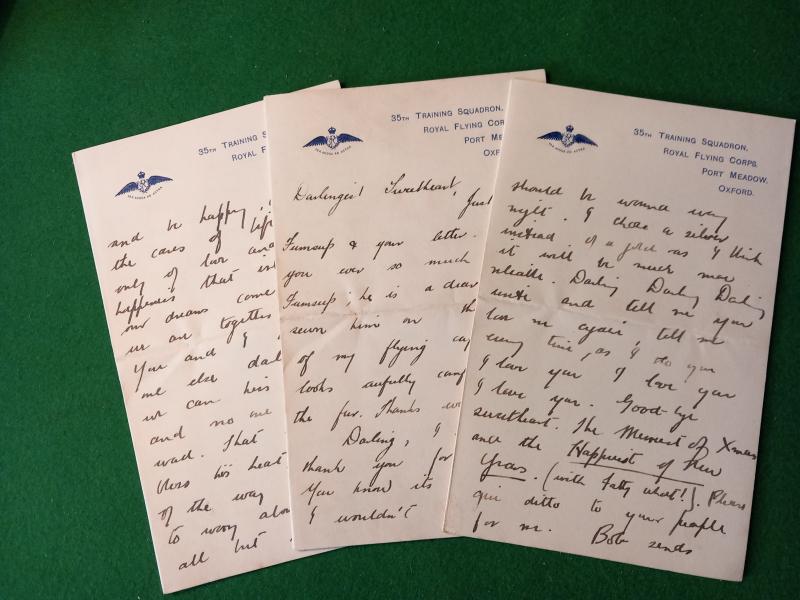 35TH TRAINING S
ROYAL F
and be happy,
the cares of life
only of love and
happiness that is
our dreams come
we are together
You and I
me else
we can
and no one
wait. That
bless his heart
of the way
to worry about
all but
35TH TRAINING SQUADRON,
ROYAL FLYING CORP
PORT ME
OXF
Darlingest Sweetheart, Just
Fumsup & your letter.
you ever so much
Fumsup, he is a dear
sewn him on th
of my flying cap
looks awfully
the fur. Thanks
Darling, I
thank you for
You know its
I wouldn't
35TH TRAINING SQUADRON,
ROYAL FLYING CORPS,
PORT MEADOW,
OXFORD.
should be wound
night. I chose a silver
instead of a gold as I think
it will be much more
reliable. Darling Darling Darling
write and tell me you
love me again, tell me
every time, as I do you
I love you I love you
I love you. Good-bye
sweetheart. The Merriest of Xmas
and the Happiest of New
Years. (with Fatty what!). Please
give ditto to your people
for me. Bob sends